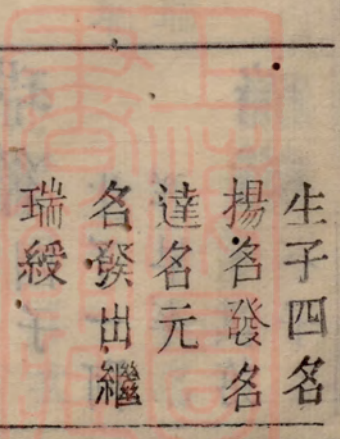 生子四名
揚名發名
達名元
名發出繼
瑞綬